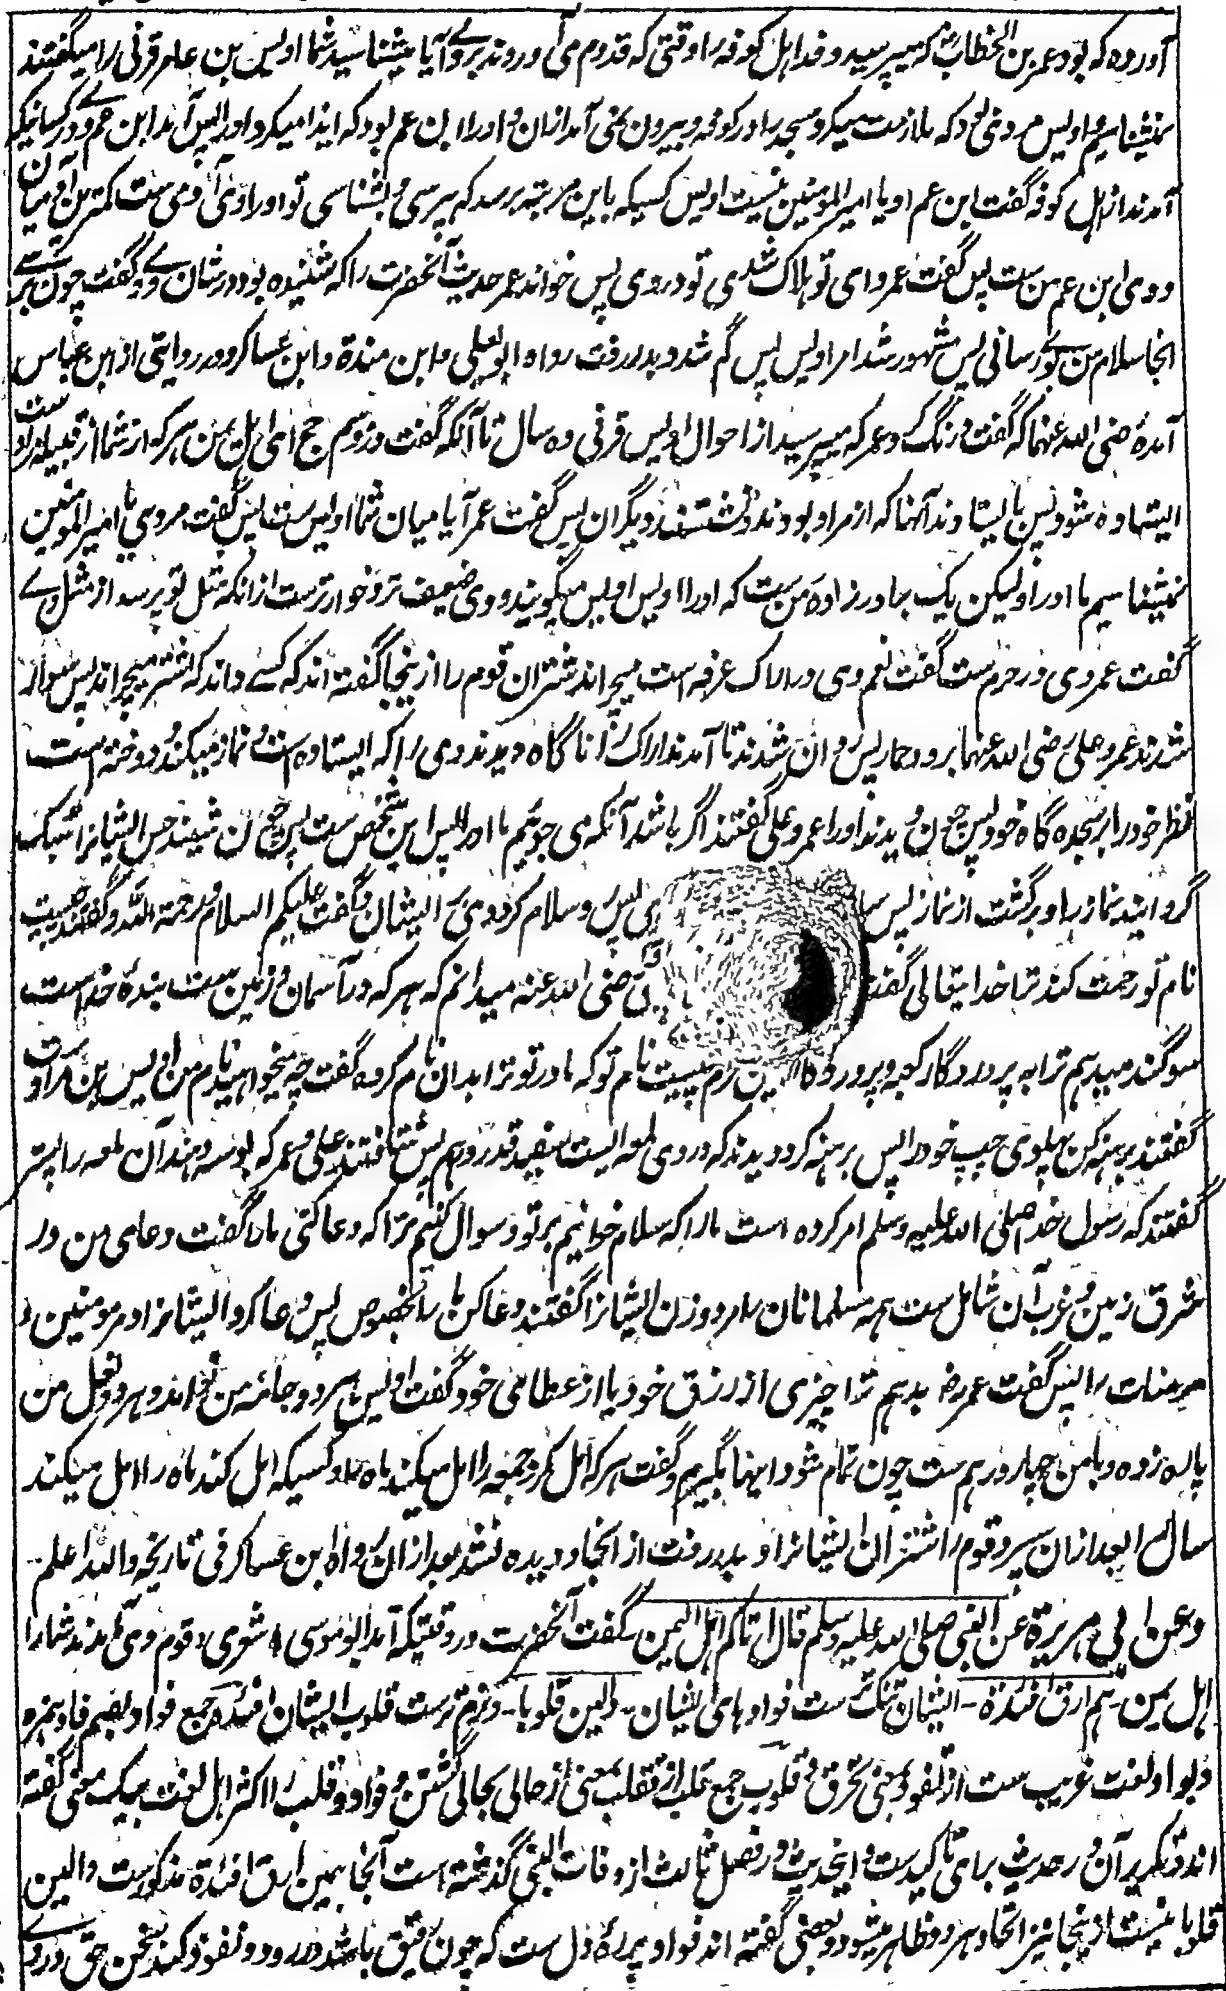 آورده که بود عمر بن الخطاب که میپرسید وفد اهل کوفه را وقتی که قدوم می آوردند بروے آیا میشناسید شما اویس بن عامر قرنی را میگفتند
نمیشناسیم و اویس مردی بود که ملازمت میکرد مسجد را در کوفه و بیرون نمی آمد ازان و او را ابن عم بود که ایذا میکرد او را پس آمد ابن عم وے در کسانیکه
آمدند از اهل کوفه گفت ابن عم او یا امیر المومنین نیست اویس کسیکه باین مرتبه برسد که پرسی و بشناسی تو او را وی آدمی ست کمترین آدمیان
و وی ابن عم من ست پس گفت عمر وای تو هلاک شدی تو در وی پس خواند عمر حدیث آنحضرت را که شنیده بود در شان وے و گفت چون برسے
آنجا سلام من بوے رسانی پس مشهور شد امر اویس پس گم شد و بدر رفت رواه ابو یعلی و ابن منده و ابن عساکر و در روایتی از ابن عباس
آمده رضی الله عنهما که گفت درنگ کرد عمر که میپرسید از احوال اویس قرنی ده سال تا آنکه گفت در موسم حج ای اهل یمن هر که از شما از قبیله مراد ست
ایستاده شود پس بایستادند آنها که از مراد بودند و نشستند دیگران پس گفت عمر آیا میان شما اویس ست پس گفت مردی یا امیر المومنین
نمیشناسیم ما او را و لیکن یک برادر زاده من ست که او را اویس اویس میگویند و وی ضعیف تر و خوارتر ست از انکه مثل تو پرسد از مثل وے
گفت عمر وی در حرم ست گفت نعم وی در اراک عرفه است میچراند شتران قوم را از ینجا گفته اند که کسے داند که شتر میچراند پس سوار
شدند عمر و علی رضی الله عنهما بر دو حمار پس روان شدند تا آمدند اراک را ناگاه دیدند وی را که ایستاده است و نماز میکند و دوخته است
نظر خود را بر سجده گاه خود پس چون دیدند او را عمر و علی گفتند اگر باشد آنکه می جوئیم ما او را پس این شخص ست پس چون شنید حس ایشانرا سبک
گردانید نماز را و برگشت از نماز پس سلا پس وسلام کرد وی بر ایشان و گفت علیکم السلام و رحمة الله و گفتند چیست
نام تو رحمت کند ترا خدا یتعالی گفت رضی الله عنه میدانم که هر که در آسمان و زمین ست بندهٔ خدا ست
سوگند میدهم ترا به پروردگار کعبه و پروردگار این حرم چیست نام تو که مادر تو ترا بدان نام کرده گفت چه میخواهید نام من اویس بن مراد ست
گفتند برهنه کن پهلوی چپ خود را پس برهنه کرد و دیدند که در وی لمعه ایست سفید قدر درهم پس شتافتند علی و عمر که بوسه دهند آن لمعه را پستر
گفتند که رسول خدا صلی الله علیه وسلم امر کرده است ما را که سلام خوانیم بر تو و سوال کنیم ترا که دعا کنی ما را گفت دعای من در
شرق زمین و غرب آن شامل ست همه مسلمانان را مرد و زن ایشانرا گفتند دعا کن ما را بخصوص پس دعا کرد ایشانرا و مر مومنین و
مومنات را پس گفت عمر رض بدهم ترا چیزی از رزق خود یا از عطای خود گفت اویس هر دو جامه من نو اند و هر دو نعل من
پاره زده و با من چهار درهم ست چون تمام شود اینها بگیرم و گفت هر که امل کرد جمعه را امل میکند ماه را و کسیکه امل کند ماه را امل میکند
سال را بعد ازان سپرد قوم را شتران ایشانرا و بدر رفت از آنجا و دیده نشد بعد ازان رواه ابن عساکر فی تاریخه والله اعلم
وعن ابی هریرة عن النبی صلی الله علیه وسلم قال اتاکم اهل الیمن گفت آنحضرت در وقتیکه آمد ابو موسی اشعری و قوم وی آمدند شما را
اهل یمن - هم ارق افئدة - ایشان تنک تر ست فوادهای ایشان - والین قلوبا - و نرم تر ست قلوب ایشان افئده جمع فواد بضم فا و همزه
و بواو لغت غریب ست از تفود بمعنی تحرق و قلوب جمع قلب از تقلب بمعنی از حالی بحالی گشتن و فواد و قلب را اکثر اهل لغت بیک معنی گفته
اند و تکریر آن در حدیث برای تاکید ست و اینحدیث در فصل ثالث از وفات النبی گذشته است آنجا همین ارق افئدة مذکور ست و الین
قلوبا نیست از ینجا نیز اتحاد هر دو ظاهر میشود و بعضی گفته اند فواد پردهٔ دل ست که چون رقیق باشد در رود و نفوذ کند سخن حق در وے